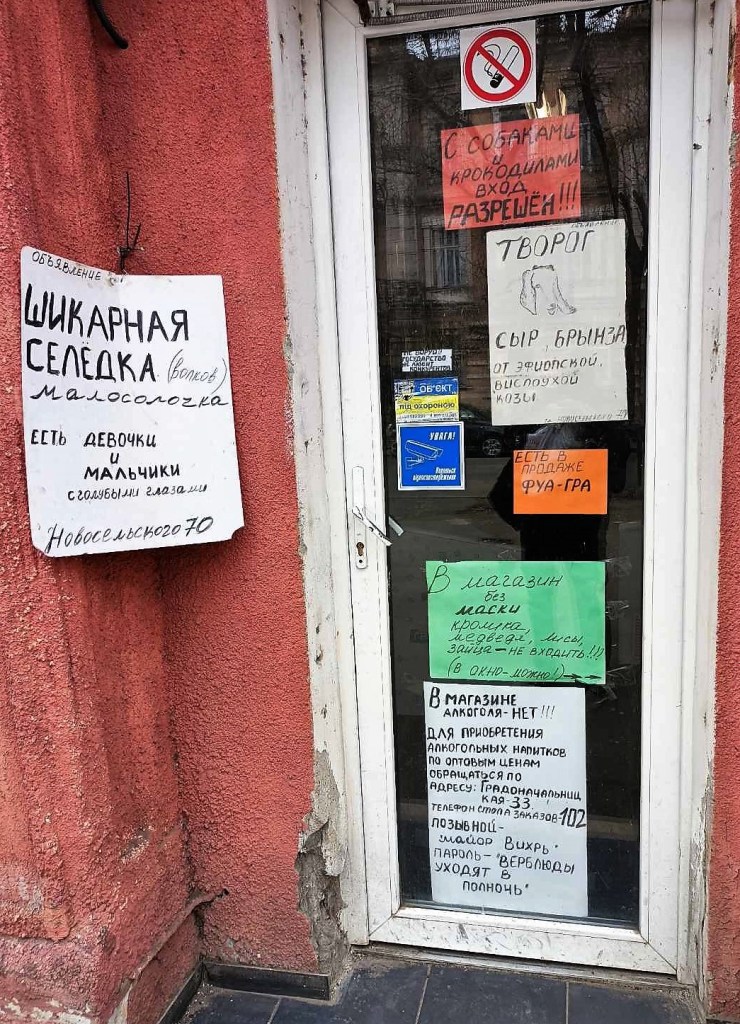 ОБЪЯВЛЕНИЕ
ШИКАРНАЯ
СЕЛЁДКА (волков)
малосолочка
ЕСТЬ ДЕВОЧКИ
И
МАЛЬЧИКИ
с голубыми глазами
Новосельского 70
С СОБАКАМИ
И
КРОКОДИЛАМИ
ВХОД
РАЗРЕШЁН!!!
ОБЪЯВЛЕНИЕ
ТВОРОГ
СЫР, БРЫНЗА
ОТ ЭФИОПСКОЙ,
ВИСЛОУХОЙ
КОЗЫ
НЕ ВОРУЙ!
ГОСУДАРСТВО
НЕ ЛЮБИТ
КОНКУРЕНТОВ
ОБ'ЄКТ
під охороною
УВАГА!
Ведеться
відеоспостереження
ЕСТЬ В
ПРОДАЖЕ
ФУА-ГРА
В магазин
без
маски
кролика,
медведя, лисы,
зайца - НЕ ВХОДИТЬ!!!
(В ОКНО-МОЖНО!)→
В МАГАЗИНЕ
АЛКОГОЛЯ-НЕТ!!!
ДЛЯ ПРИОБРЕТЕНИЯ
АЛКОГОЛЬНЫХ НАПИТКОВ
ПО ОПТОВЫМ ЦЕНАМ
ОБРАЩАТЬСЯ ПО
АДРЕСУ: ГРАДОНАЧАЛЬНИЦ
КАЯ-33.
ТЕЛЕФОН СТОЛА ЗАКАЗОВ 102
ПОЗЫВНОЙ-
"МАЙОР ВИХРЬ"
ПАРОЛЬ- "ВЕРБЛЮДЫ
УХОДЯТ В
ПОЛНОЧЬ"